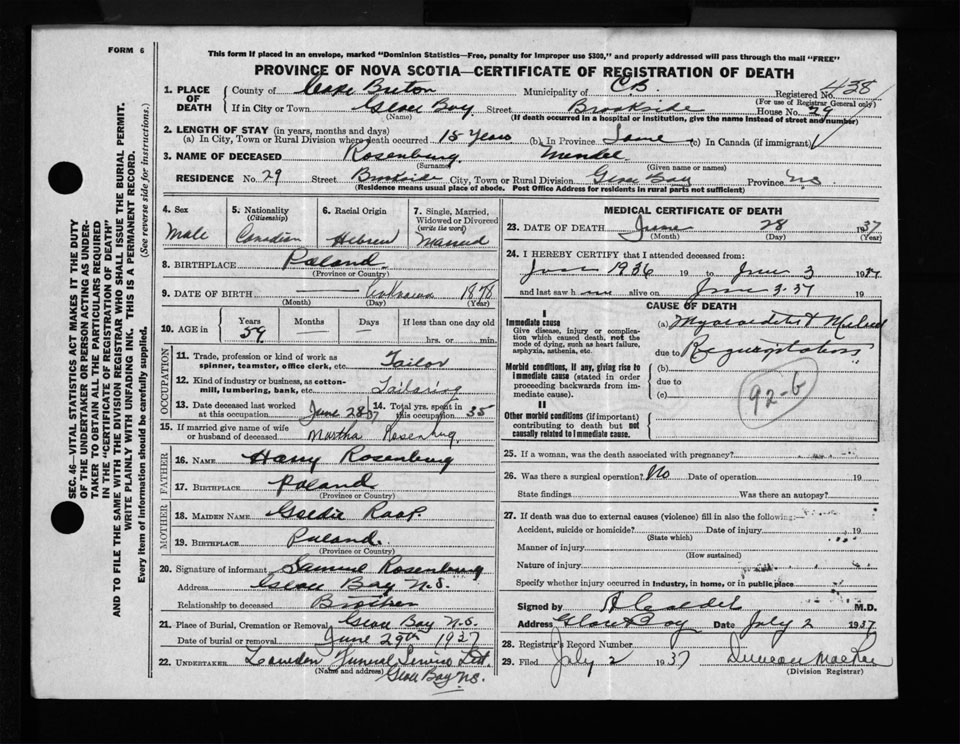 FORM 6
This form if placed in an envelope, marked "Dominion Statistics—Free, penalty for improper use $300," and properly addressed will pass through the mail "FREE"
PROVINCE OF NOVA SCOTIA—CERTIFICATE OF REGISTRATION OF DEATH
SEC. 46—VITAL STATISTICS ACT MAKES IT THE DUTY
OF THE UNDERTAKER OR PERSON ACTING AS UNDER-
TAKER TO OBTAIN ALL THE PARTICULARS REQUIRED
IN THE "CERTIFICATE OF REGISTRATION OF DEATH"
AND TO FILE THE SAME WITH THE DIVISION REGISTRAR WHO SHALL ISSUE THE BURIAL PERMIT.
WRITE PLAINLY WITH UNFADING INK. THIS IS A PERMANENT RECORD.
Every item of information should be carefully supplied. (See reverse side for instructions.)
1. PLACE OF DEATH County of Cape Breton Municipality of C.B. Registered No. 438
(For use of Registrar General only)
If in City or Town Glace Bay Street Brookside House No. 29
(Name) (If death occurred in a hospital or institution, give the name instead of street and number)
2. LENGTH OF STAY (in years, months and days)
(a) In City, Town or Rural Division where death occurred 18 Years (b) In Province Same (c) In Canada (if immigrant)
3. NAME OF DECEASED Rosenburg, Mendel
(Surname) (Given name or names)
RESIDENCE No. 29 Street Brookside City, Town or Rural Division Glace Bay Province N.S.
(Residence means usual place of abode. Post Office Address for residents in rural parts not sufficient)
4. Sex Male
5. Nationality (Citizenship) Canadian
6. Racial Origin Hebrew
7. Single, Married, Widowed or Divorced (write the word) Married
8. BIRTHPLACE Poland
(Province or Country)
9. DATE OF BIRTH Unknown 1878
(Month) (Day) (Year)
10. AGE in Years 59 Months — Days — If less than one day hrs. or min.
OCCUPATION
11. Trade, profession or kind of work as spinner, teamster, office clerk, etc. Tailor
12. Kind of industry or business, as cotton-mill, lumbering, bank, etc. Tailoring
13. Date deceased last worked at this occupation June 28/37 14. Total yrs. spent in this occupation 35
15. If married give name of wife or husband of deceased Martha Rosenburg
FATHER
16. NAME Harry Rosenburg
17. BIRTHPLACE Poland
(Province or Country)
MOTHER
18. MAIDEN NAME Goldie
19. BIRTHPLACE Poland.
(Province or Country)
20. Signature of informant Samuel Rosenburg
Address Glace Bay N.S.
Relationship to deceased Brother
21. Place of Burial, Cremation or Removal Glace Bay N.S.
Date of burial or removal June 29th 1937
22. UNDERTAKER Funeral Service Ltd.
(Name and address) Glace Bay N.S.
MEDICAL CERTIFICATE OF DEATH
23. DATE OF DEATH June 28 1937
(Month) (Day) (Year)
24. I HEREBY CERTIFY that I attended deceased from:
1936 19 to June 3 1937
and last saw h alive on June 3.37 19
CAUSE OF DEATH
I
Immediate cause
Give disease, injury or complication which caused death, not the mode of dying, such as heart failure, asphyxia, asthenia, etc.
(a) Myocarditis & Mitral
due to Regurgitation
Morbid conditions, if any, giving rise to immediate cause (stated in order proceeding backwards from immediate cause).
(b)
due to
(c)
92-b
II
Other morbid conditions (if important) contributing to death but not causally related to immediate cause.
25. If a woman, was the death associated with pregnancy?
26. Was there a surgical operation? No Date of operation 19
State findings Was there an autopsy?
27. If death was due to external causes (violence) fill in also the following:
Accident, suicide or homicide? Date of injury 19
(State which)
Manner of injury
(How sustained)
Nature of injury
Specify whether injury occurred in industry, in home, or in public place
Signed by M.D.
Address Glace Bay Date July 2 1937
28. Registrar's Record Number
29. Filed July 2 1937 Duncan MacRae
(Division Registrar)